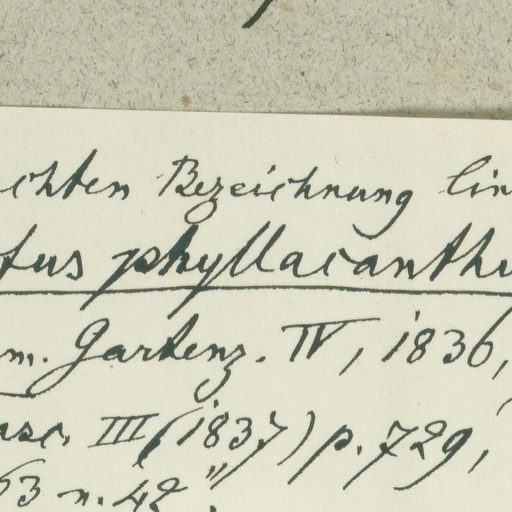 chten Bezeichnung lin
tus phyllacanthu
m. Gartenz. IV, 1836,
asc. III (1837) p. 729,
63 n. 42".